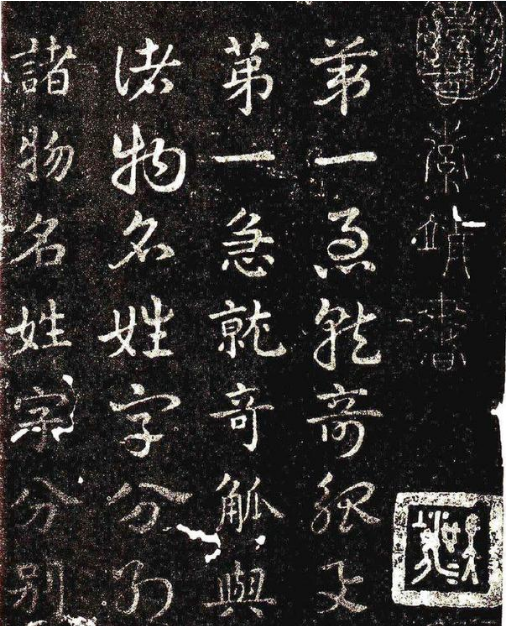 索靖書
第一急就奇觚與
第一急就奇觚與
諸物名姓字分別
諸物名姓字分別